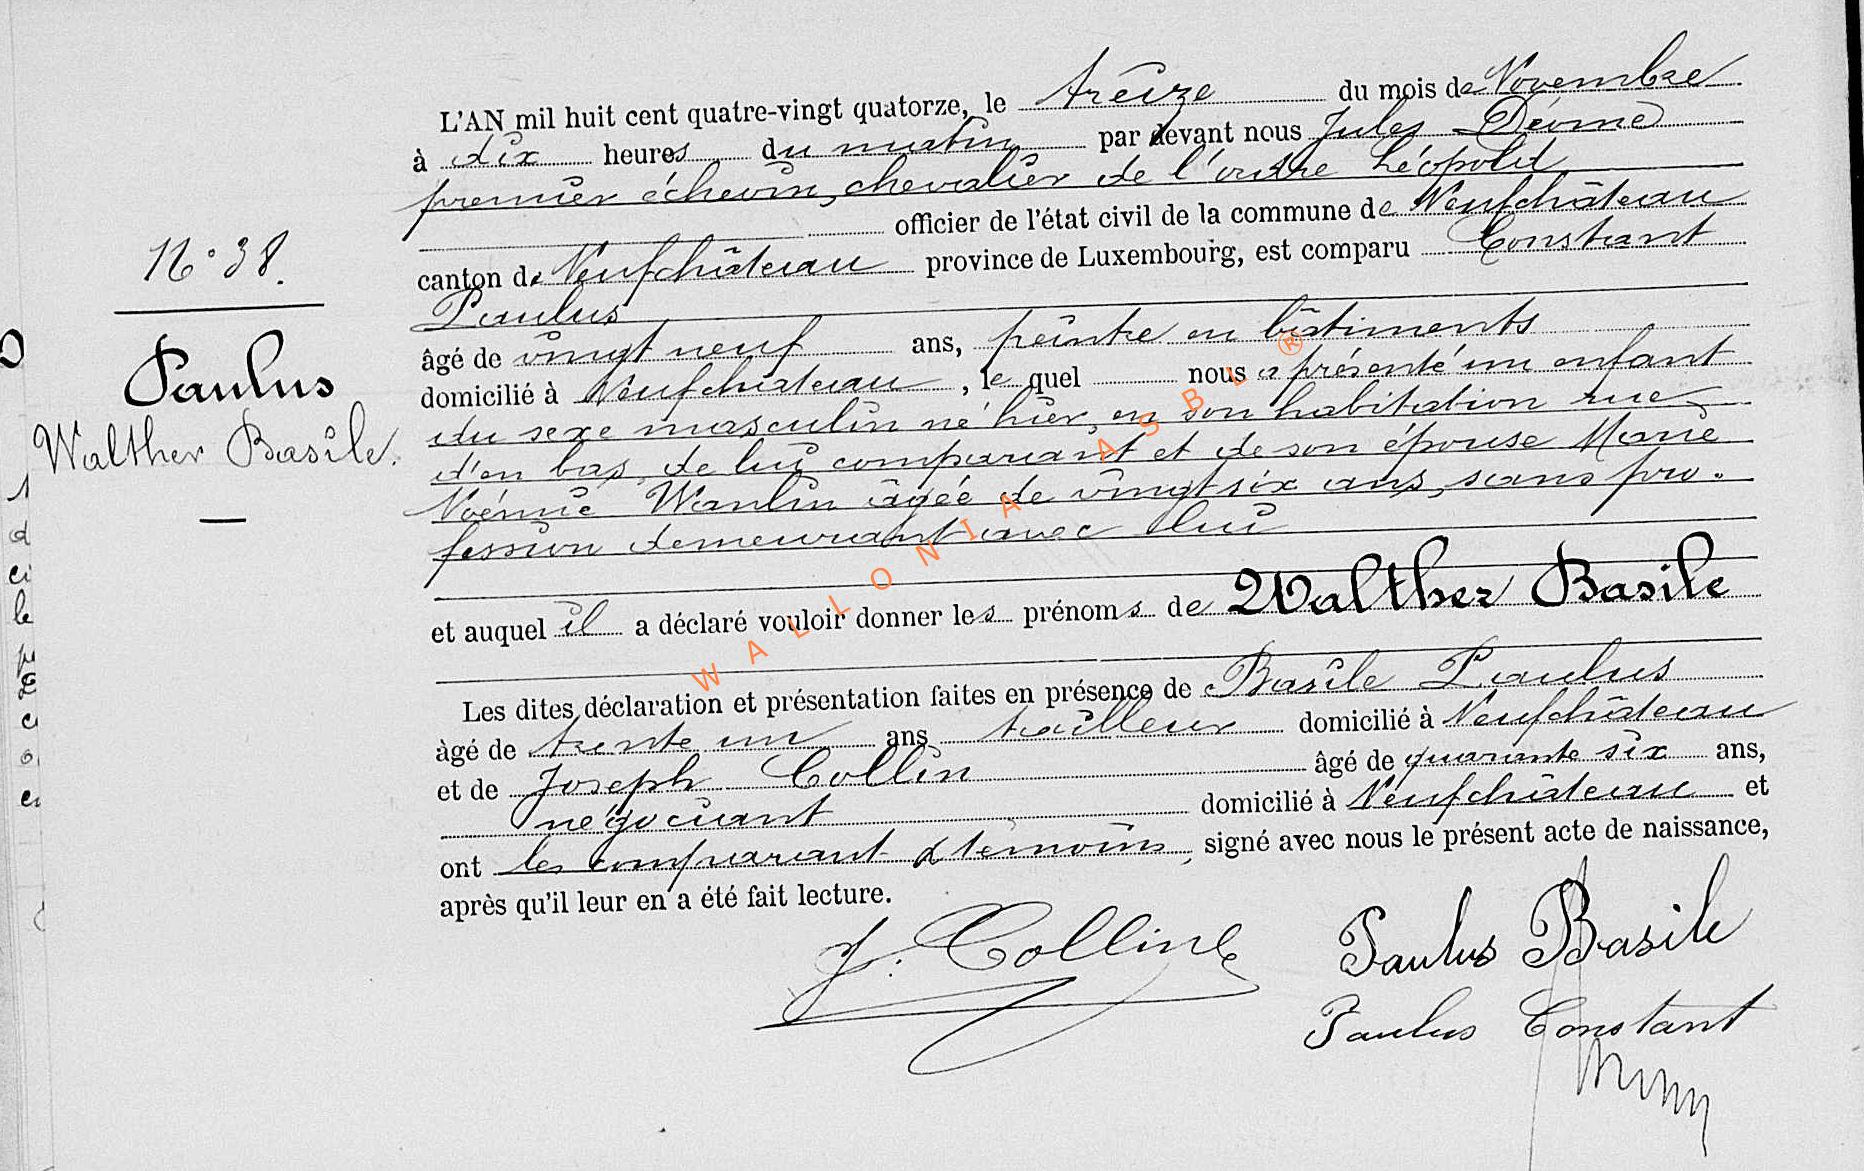 N° 38.
Paulus
Walther Basile.
L'AN mil huit cent quatre-vingt quatorze, le treize du mois de Novembre
à dix heures du matin par devant nous Jules
premier échevin, chevalier de l'ordre Léopold
officier de l'état civil de la commune de Neufchâteau
canton de Neufchâteau province de Luxembourg, est comparu Constant
Paulus
âgé de vingt neuf ans, peintre en bâtiments
domicilié à Neufchâteau, le quel nous a présenté un enfant
du sexe masculin né hier, en son habitation rue
d'en bas, de lui comparant et de son épouse Marie
Noémie Wanlin âgée de vingt six ans, sans pro-
fession demeurant avec lui
et auquel il a déclaré vouloir donner les prénoms de Walther Basile
Les dites déclaration et présentation faites en présence de Basile Paulus
âgé de trente un ans tailleur domicilié à Neufchâteau
et de Joseph Collin âgé de quarante six ans,
négociant domicilié à Neufchâteau et
ont les comparant & témoins, signé avec nous le présent acte de naissance,
après qu'il leur en a été fait lecture.
J. Collin
Paulus Basile
Paulus Constant
WALLONIA ASBL ®